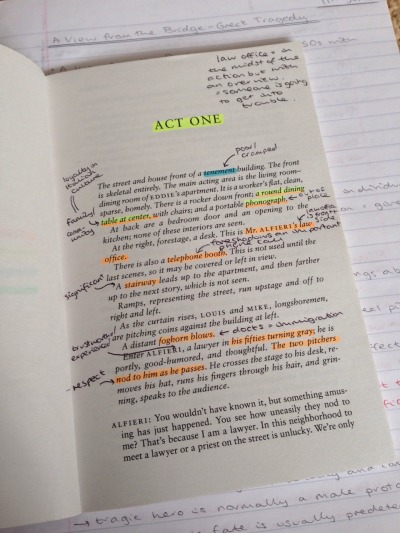 A View from the Bridge - Greek Tragedy
law office = in
the midst of the
action but with
an overview.
= someone is going
to get into
trouble.
ACT ONE
poor/
cramped
loyalty in
Italian
culture
The street and house front of a tenement building. The front
is skeletal entirely. The main acting area is the living room-
dining room of EDDIE's apartment. It is a worker's flat, clean,
sparse, homely. There is a rocker down front; a round dining
table at center, with chairs; and a portable phonograph.
family/
out of
place
At back are a bedroom door and an opening to the
kitchen; none of these interiors are seen.
At the right, forestage, a desk. This is MR. ALFIERI's law
office.
foreshadows an important
phone call
There is also a telephone booth. This is not used until the
last scenes, so it may be covered or left in view.
significant
A stairway leads up to the apartment, and then farther
up to the next story, which is not seen.
Ramps, representing the street, run upstage and off to
right and left.
As the curtain rises, LOUIS and MIKE, longshoremen,
are pitching coins against the building at left.
trustworthy/
experienced
A distant foghorn blows.
docks = immigration
Enter ALFIERI, a lawyer in his fifties turning gray; he is
portly, good-humored, and thoughtful. The two pitchers
respect
nod to him as he passes. He crosses the stage to his desk, re-
moves his hat, runs his fingers through his hair, and grin-
ning, speaks to the audience.
ALFIERI: You wouldn't have known it, but something amus-
ing has just happened. You see how uneasily they nod to
me? That's because I am a lawyer. In this neighborhood to
meet a lawyer or a priest on the street is unlucky. We're only
→ tragic hero is normally a male
fate is usually